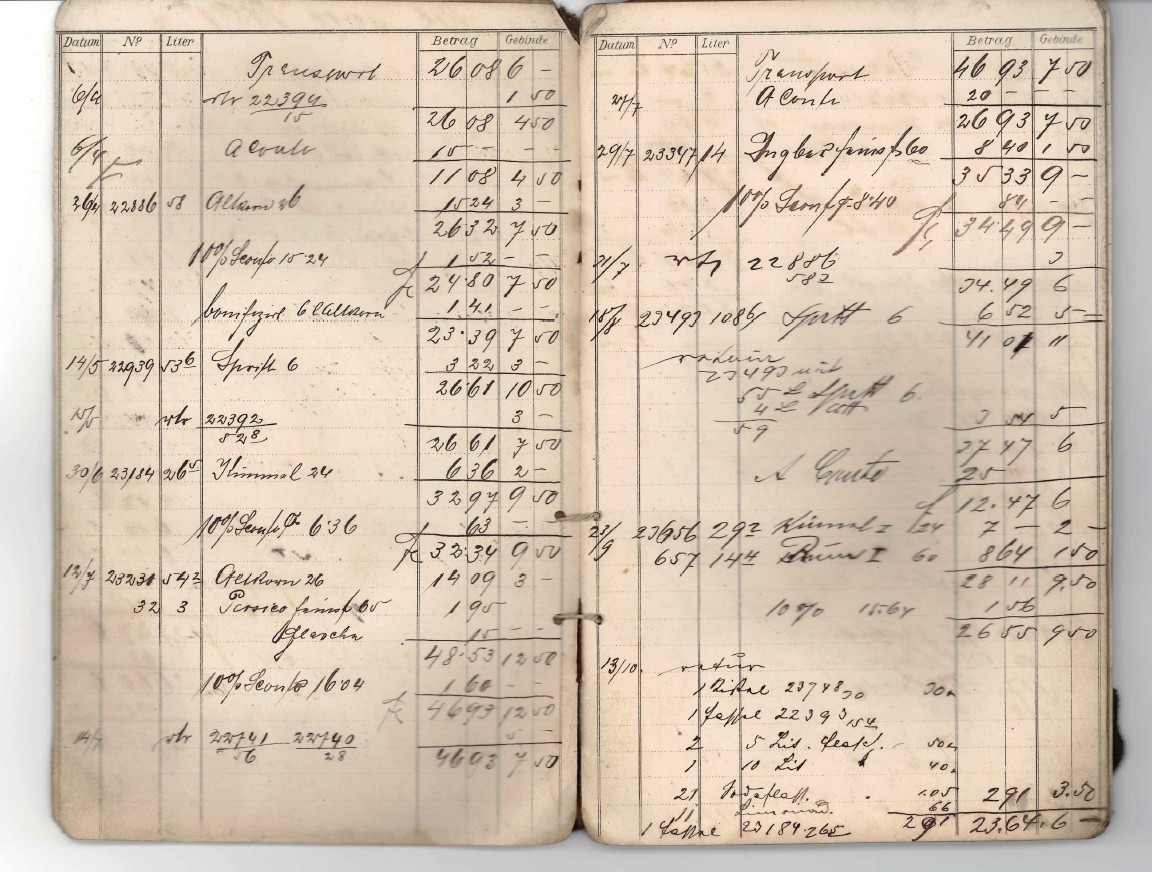 Datum Nº Liter Betrag Gebinde
Transport 26 08 6 –
6/4 rtr 22394 1 50
15
26 08 4 50
6/4 a Conto 15 – – –
11 08 4 50
26/4 22886 58 Altkorn 26 15 24 3 –
26 32 7 50
10% Sconto 15.24 1 52 – –
24.80 7 50
bonifizirt 6 l Altkorn 1 41 – –
23.39 7 50
14/5 22939 53 6 Sprit 6 3 22 3 –
26 61 10 50
15/5 rtr 22392 3 –
52 8
26 61 7 50
30/6 23184 26 5 Kümmel 24 6 36 2 –
32 97 9 50
10% Sconto 6.36 63 – –
32.34 9 50
12/7 23231 54 2 Altkorn 26 14 09 3 –
32 3 Persico feinst 65 1 95
Flasche 15 – –
48.53 12 50
10% Sconto 16.04 1 60 – –
46 93 12 50
14/7 rtr 22741 22740 5 –
56 28
46 93 7 50
Datum Nº Liter Betrag Gebinde
Transport 46 93 7 50
27/7 a Conto 20 – – –
26 93 7 50
29/7 23347 14 Ingber feinst 60 8 40 1 50
35 33 9 –
10% Sconto 8.40 84 – –
34.49 9 –
31/7 rtr 22886 3
582
34.49 6
18/8 23493 108 6 Spritt 6 6 52 5 –
41 01 "
retour
23493 mit
55 L Spritt 6
4 L
59 3 54 5 –
37 47 6
A Conto 25
12.47 6
23/9 23656 29 2 Kümmel I 24 7 – 2 –
657 14 4 Rum I 60 8 64 1 50
28 11 9.50
10% 15.64 1 56
26 55 9 50
13/10. retour
1 23748 30 30
1 Fassel 22393 154
2 5 Lit. Flasch. 50
1 10 Lit 40
21 Sodaflasch. 1.05 2 91 3.50
11 66
1 Fassel 23184.265 2 91 23.64.6 –